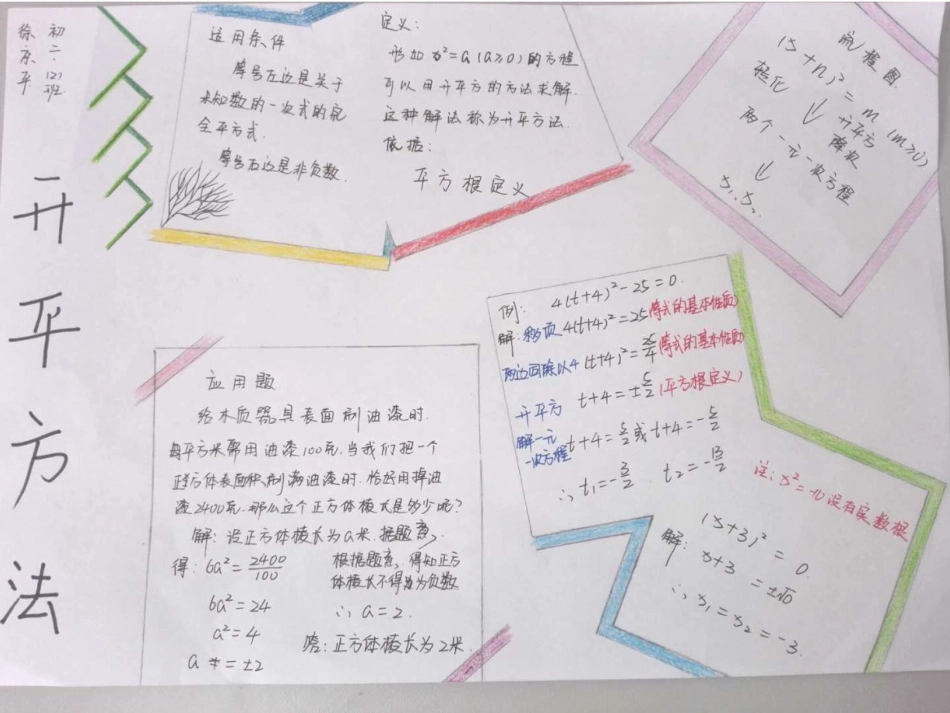 初二·(2)班
开平方法
适用条件
等号左边是关于
未知数的一次式的完
全平方式.
等号右边是非负数.
定义:
形如x²=a(a≥0)的方程
可以用开平方的方法求解.
这种解法称为开平方法.
依据:
平方根定义
流程图
(x+n)²=m(m≥0)
转化 ↓ 开平方
降次
两个一元一次方程
↓
x₁,x₂
例: 4(t+4)²-25=0.
解:移项 4(t+4)²=25(等式的基本性质)
两边同除以4 (t+4)²=25/4(等式的基本性质)
开平方 t+4=±5/2(平方根定义)
解一元一次方程 t+4=5/2或t+4=-5/2
∴t₁=-3/2 t₂=-13/2
注:x²=-10没有实数根
(x+3)²=0
解: x+3=±√0
∴x₁=x₂=-3.
应用题
给木质器具表面刷油漆时.
每平方米需用油漆100克,当我们把一个
正方体表面积刷满油漆时.恰好用掉油
漆2400克.那么这个正方体棱长是多少呢?
解:设正方体棱长为a米.据题意,
得:6a²=2400/100
6a²=24
a²=4
a=±2
根据题意,得知正方
体棱长不得为负数
∴a=2.
答:正方体棱长为2米.